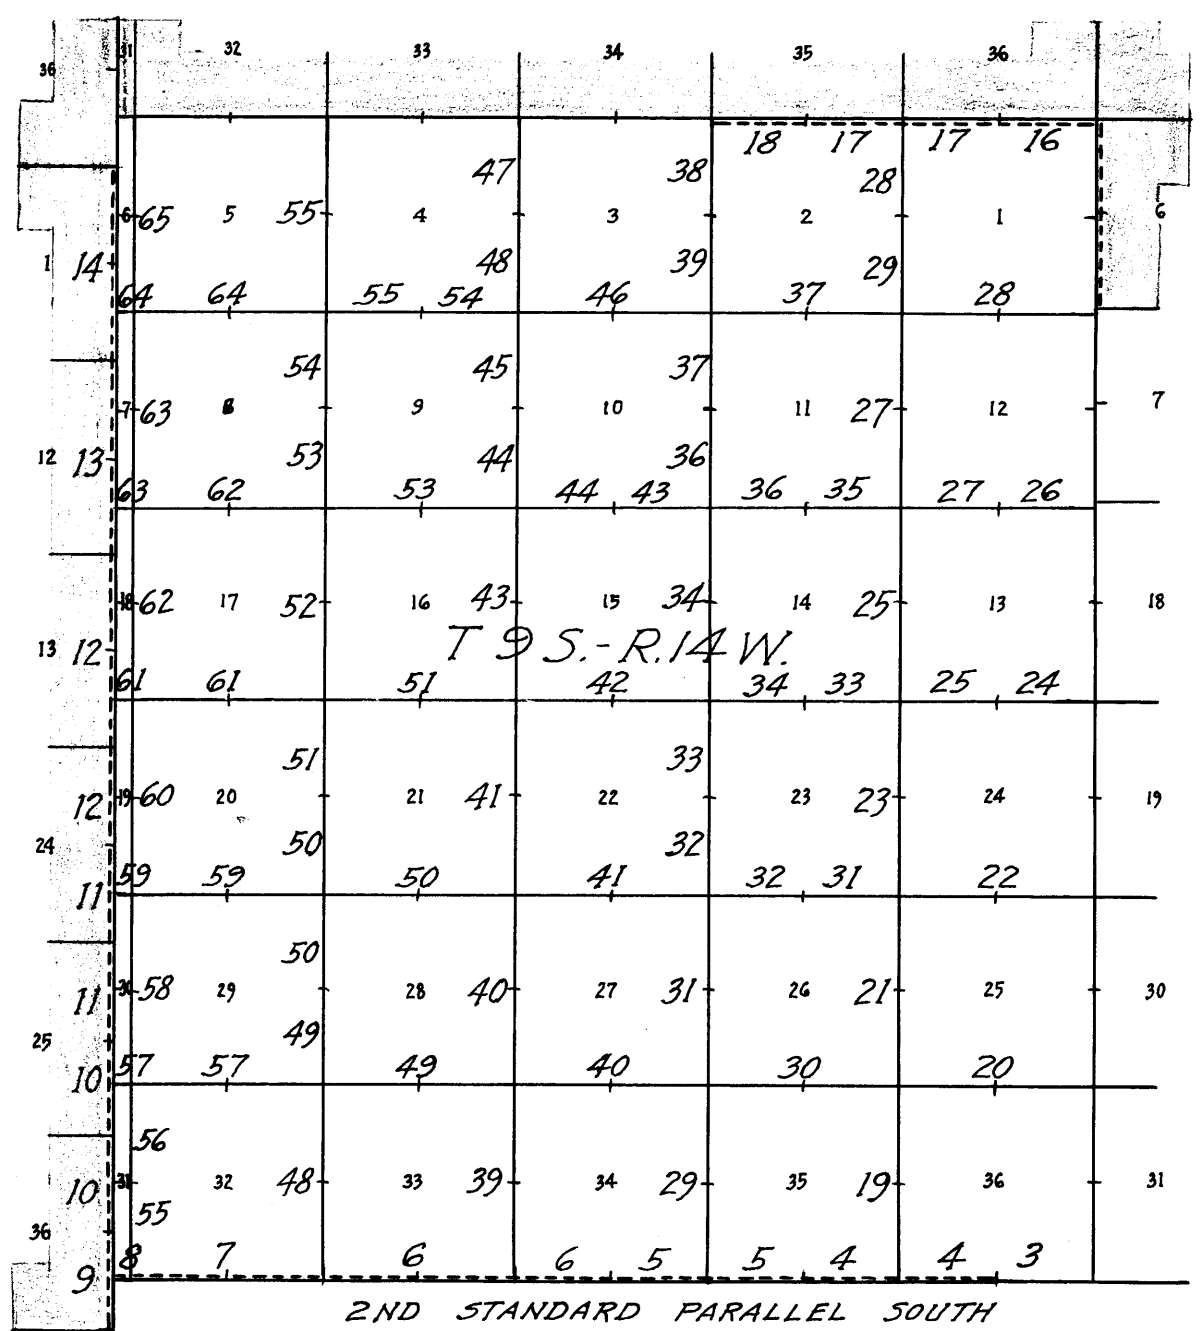 36 31 32 33 34 35 36
18 17 17 16
47 38 28
6 65 5 55 4 3 2 1 6
1 14 48 39 29
64 64 55 54 46 37 28
54 45 37
7 63 8 9 10 11 27 12 7
12 13 53 44 36
63 62 53 44 43 36 35 27 26
18 62 17 52 16 43 15 34 14 25 13 18
13 12 T 9 S.-R.14 W.
61 61 51 42 34 33 25 24
51 33
12 19 60 20 21 41 22 23 23 24 19
24 50 32
11 59 59 50 41 32 31 22
50
11 30 58 29 28 40 27 31 26 21 25 30
25 49
10 57 57 49 40 30 20
56
10 31 32 48 33 39 34 29 35 19 36 31
36 55
9 8 7 6 6 5 5 4 4 3
2ND STANDARD PARALLEL SOUTH